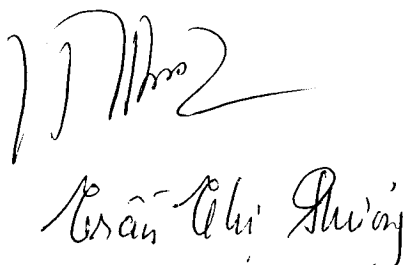 Trần Thị Phương